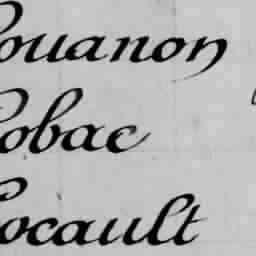 Louanon
Lobac
Locault